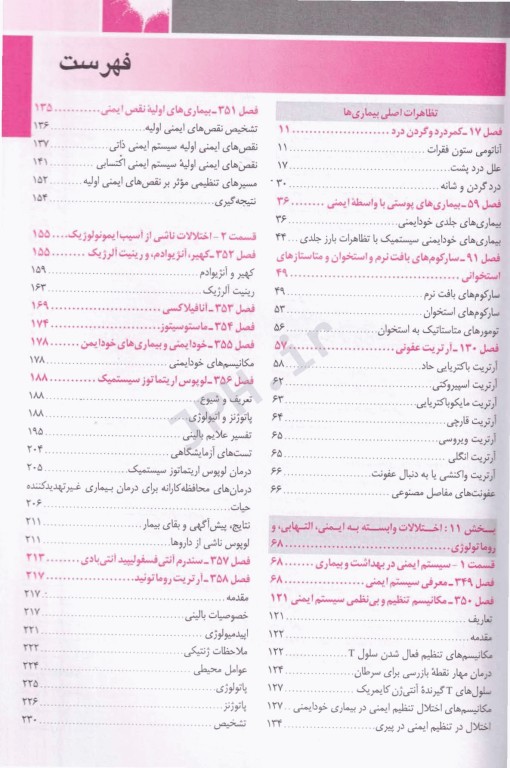 فهرست
تظاهرات اصلی بیماری‌ها
فصل ۱۷ ـ کمردرد و گردن درد ........ ۱۱
آناتومی ستون فقرات ........ ۱۱
علل درد پشت ........ ۱۷
درد گردن و شانه ........ ۳۰
فصل ۵۹ ـ بیماری‌های پوستی با واسطهٔ ایمنی ........ ۳۶
بیماری‌های جلدی خودایمنی ........ ۳۶
بیماری‌های خودایمنی سیستمیک با تظاهرات بارز جلدی ... ۴۴
فصل ۹۱ ـ سارکوم‌های بافت نرم و استخوان و متاستازهای
استخوانی ........ ۴۹
سارکوم‌های بافت نرم ........ ۴۹
سارکوم‌های استخوان ........ ۵۳
تومورهای متاستاتیک به استخوان ........ ۵۶
فصل ۱۳۰ ـ آرتریت عفونی ........ ۵۷
آرتریت باکتریایی حاد ........ ۵۸
آرتریت اسپیروکتی ........ ۶۲
آرتریت مایکوباکتریایی ........ ۶۳
آرتریت قارچی ........ ۶۴
آرتریت ویروسی ........ ۶۵
آرتریت انگلی ........ ۶۵
آرتریت واکنشی یا به دنبال عفونت ........ ۶۶
عفونت‌های مفاصل مصنوعی ........ ۶۶
بخش ۱۱: اختلالات وابسته به ایمنی، التهابی، و
روماتولوژی ........ ۶۸
قسمت ۱ - سیستم ایمنی در بهداشت و بیماری ........ ۶۸
فصل ۳۴۹ ـ معرفی سیستم ایمنی ........ ۶۸
فصل ۳۵۰ ـ مکانیسم تنظیم و بی‌نظمی سیستم ایمنی ۱۲۱
تعاریف ........ ۱۲۱
مقدمه ........ ۱۲۲
مکانیسم‌های تنظیم فعال شدن سلول T ........ ۱۲۲
درمان مهار نقطهٔ بازرسی برای سرطان ........ ۱۲۴
سلول‌های T گیرندهٔ آنتی‌ژن کایمریک ........ ۱۲۷
مکانیسم‌های اختلال تنظیم ایمنی در بیماری خودایمنی ... ۱۲۷
اختلال در تنظیم ایمنی در پیری ........ ۱۳۴
فصل ۳۵۱ ـ بیماری‌های اولیهٔ نقص ایمنی ........ ۱۳۵
تشخیص نقص‌های ایمنی اولیه ........ ۱۳۶
نقص‌های ایمنی اولیه سیستم ایمنی ذاتی ........ ۱۳۷
نقص‌های ایمنی اولیهٔ سیستم ایمنی اکتسابی ........ ۱۴۱
مسیرهای تنظیمی مؤثر بر نقص‌های ایمنی اولیه ........ ۱۵۲
نتیجه‌گیری ........ ۱۵۴
قسمت ۲ - اختلالات ناشی از آسیب ایمونولوژیک ........ ۱۵۵
فصل ۳۵۲ ـ کهیر، آنژیوادم، و رینیت آلرژیک ........ ۱۵۵
کهیر و آنژیوادم ........ ۱۵۹
رینیت آلرژیک ........ ۱۶۳
فصل ۳۵۳ ـ آنافیلاکسی ........ ۱۶۹
فصل ۳۵۴ ـ ماستوسیتوز ........ ۱۷۴
فصل ۳۵۵ ـ خودایمنی و بیماری‌های خودایمن ........ ۱۷۸
مکانیسم‌های خودایمنی ........ ۱۷۸
فصل ۳۵۶ ـ لوپوس اریتماتوز سیستمیک ........ ۱۸۸
تعریف و شیوع ........ ۱۸۸
پاتوژنز و اتیولوژی ........ ۱۸۸
تفسیر علایم بالینی ........ ۱۹۵
تست‌های آزمایشگاهی ........ ۲۰۴
درمان لوپوس اریتماتوز سیستمیک ........ ۲۰۵
درمان‌های محافظه‌کارانه برای درمان بیماری غیرتهدیدکننده
حیات ........ ۲۰۶
نتایج، پیش‌آگهی و بقای بیمار ........ ۲۱۱
لوپوس ناشی از داروها ........ ۲۱۱
فصل ۳۵۷ ـ سندرم آنتی فسفولیپید آنتی‌بادی ........ ۲۱۳
فصل ۳۵۸ ـ آرتریت روماتوئید ........ ۲۱۷
مقدمه ........ ۲۱۷
خصوصیات بالینی ........ ۲۱۷
اپیدمیولوژی ........ ۲۲۱
ملاحظات ژنتیکی ........ ۲۲۲
عوامل محیطی ........ ۲۲۴
پاتولوژی ........ ۲۲۵
پاتوژنز ........ ۲۲۶
تشخیص ........ ۲۳۰
JPH.ir